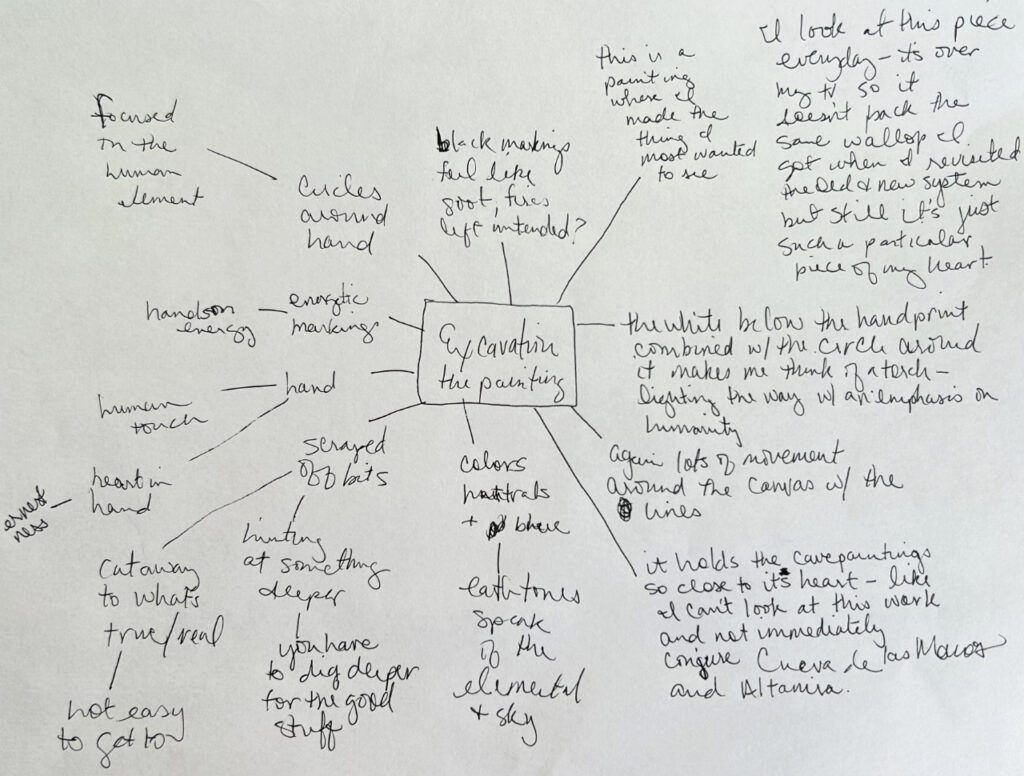 focused
in the
human
element
circles
around
hand
black markings
feel like
soot, fires
left untended?
this is a
painting
where I
made the
thing I
most wanted
to see
I look at this piece
everyday – it's over
my tv so it
doesn't pack the
same wallop I
got when I revisited
the Old & new system
but still it's just
such a particular
piece of my heart.
hands on
energy
energetic
markings
Excavation
the painting
the white below the handprint
combined w/ the circle around
it makes me think of a torch –
lighting the way w/ an emphasis on
humanity
hand
human
touch
heart in
hand
ernest
ness
scraped
off bits
cut away
to what's
true/real
not easy
to get to
hinting
at something
deeper
you have
to dig deeper
for the good
stuff
colors
nuetrals
+ blue
eath tones
speak
of the
elemental
+ sky
again lots of movement
around the canvas w/ the
lines
it holds the cave paintings
so close to it's heart – like
I can't look at this work
and not immediately
conjure Cueva de las Manos
and Altamira.